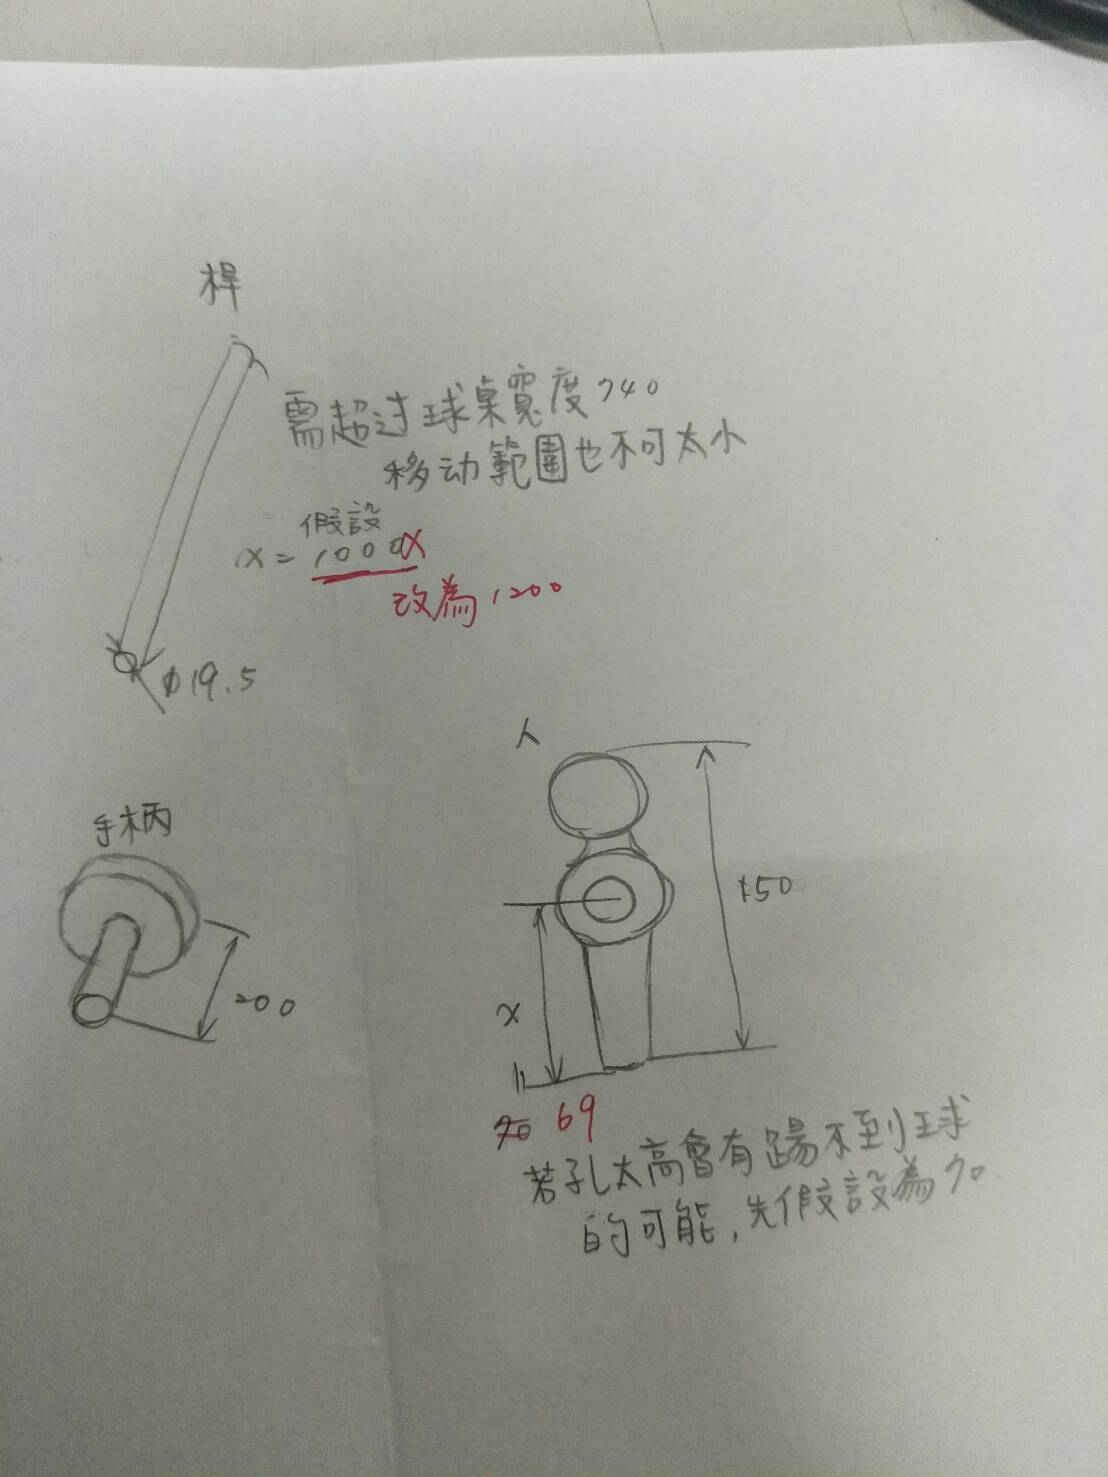 桿
需超过球桌寬度740
移动範圍也不可太小
假設
x=1000x
改為1200
ϕ19.5
人
手柄
150
200
x
=
70 69
若孔太高會有踢不到球
的可能,先假設為70